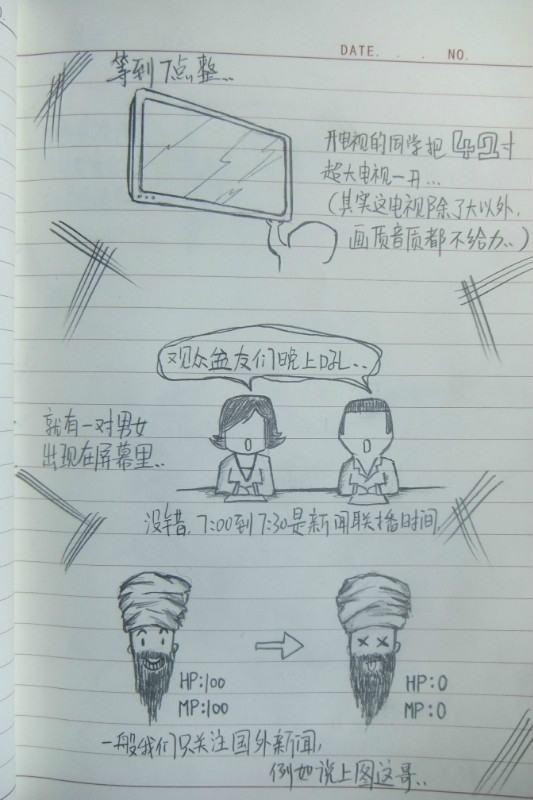 DATE. . . NO.
等到7点整..
开电视的同学把42寸
超大电视一开...
(其实这电视除了大以外,
画质音质都不给力..)
观众盆友们晚上吼...
就有一对男女
出现在屏幕里..
没错,7:00到7:30是新闻联播时间
HP:100
MP:100
HP:0
MP:0
一般我们只关注国外新闻,
例如说上图这哥..